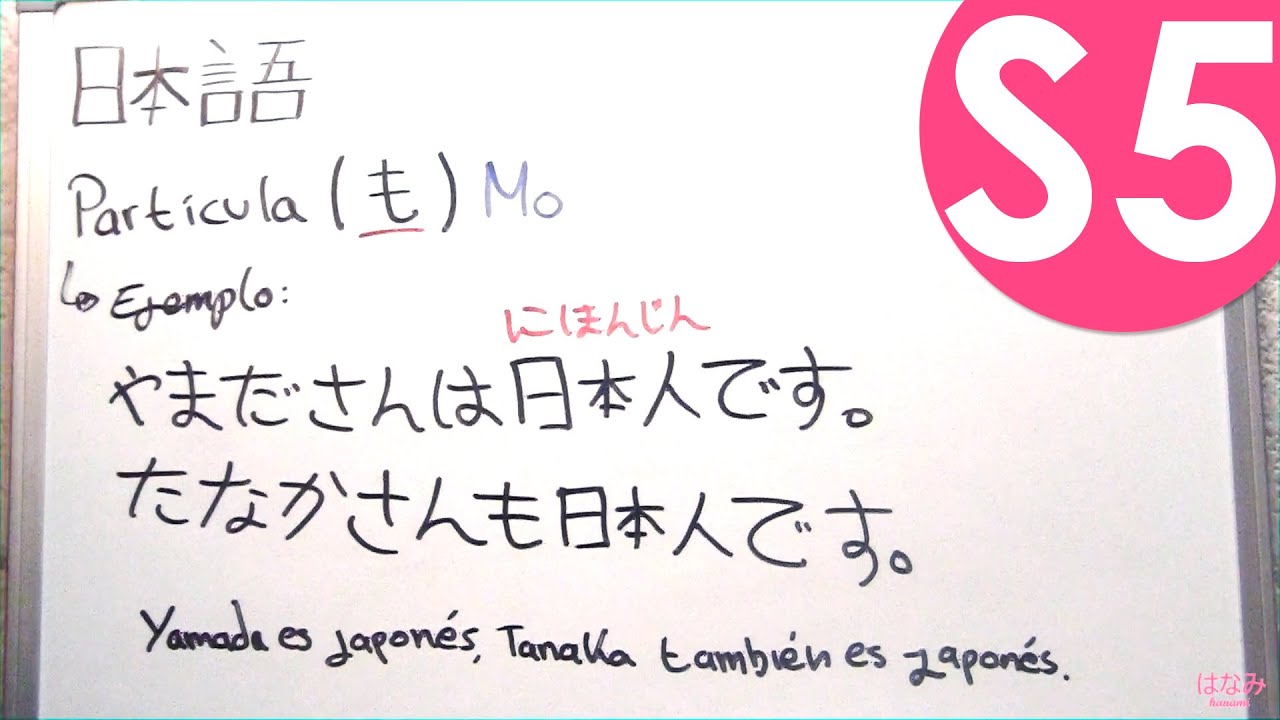 日本語
S5
Partícula (も) Mo
↳ Ejemplo:
にほんじん
やまださんは日本人です。
たなかさんも日本人です。
Yamada es japonés, Tanaka también es japonés.
はなみ
hanami